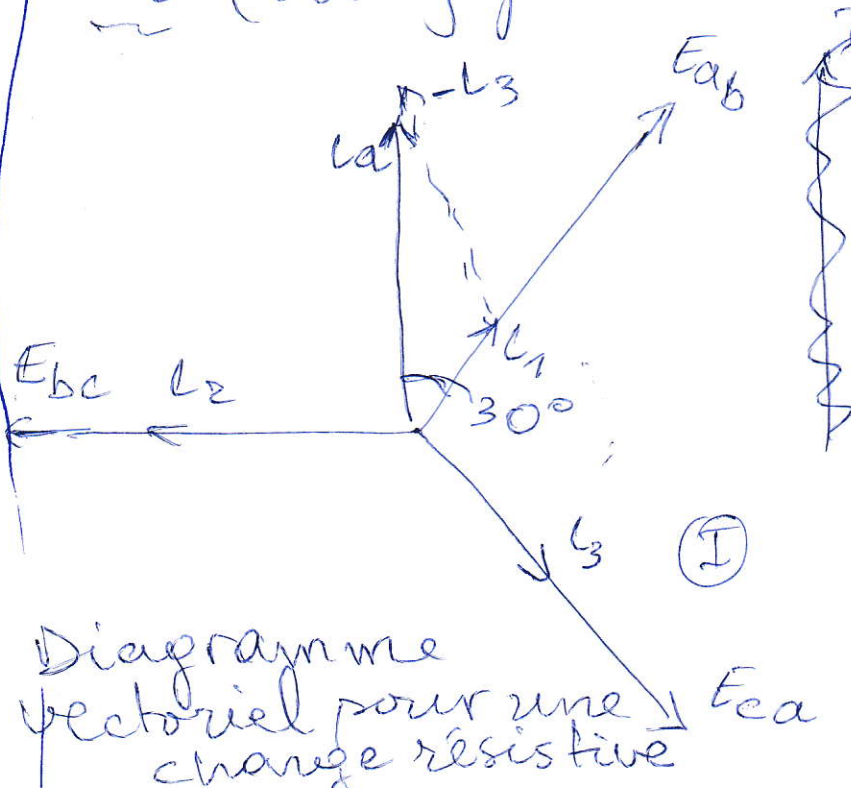 -i₃
E_ab
i_a
i₁
E_bc i₂
30°
i₃
I
Diagramme
vectoriel pour une
E_ca
charge résistive